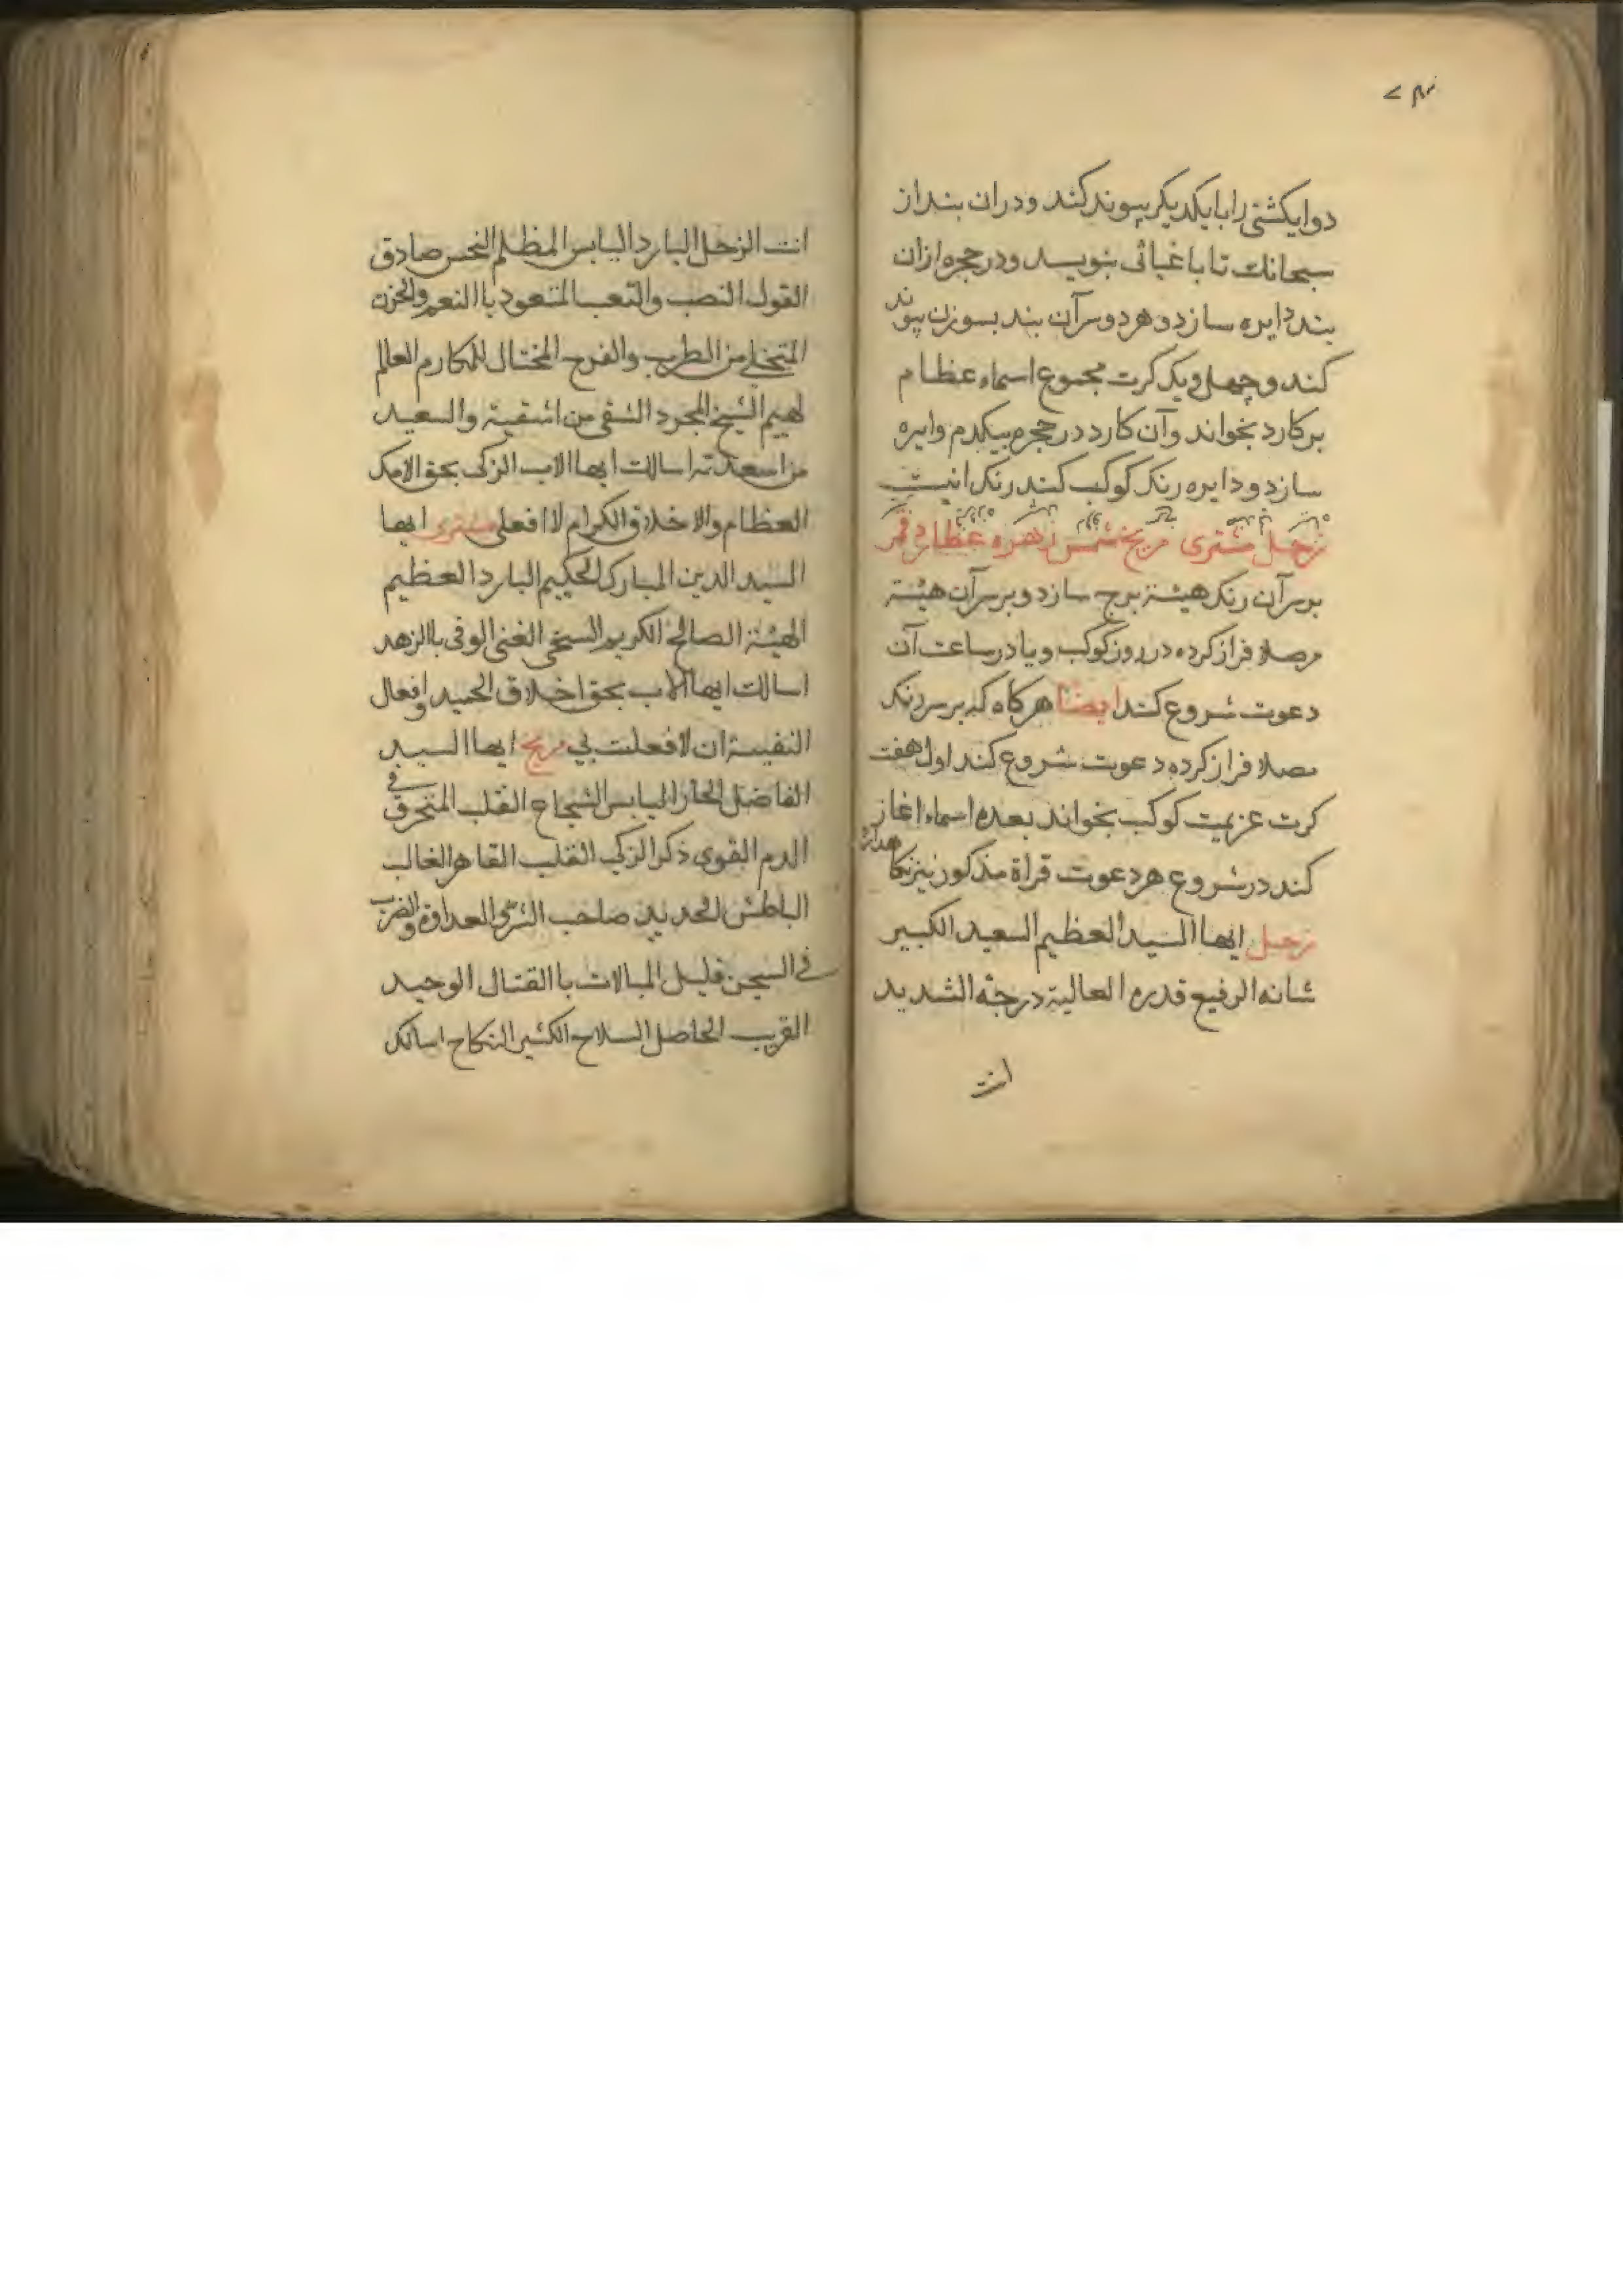 دوایکشتی را بایکدیکر پیوند کند و دران بند از
سبحانك تا باغیاثی بنویسد و در حجره ازان
بند دایره سازد و هر دو سرآن بند بسوزن پیوند
کند و چهل و یک کرت مجموع اسماء عظام
برکارد بخواند و آن کارد در حجره بیکدم دایره
سازد و دایره رنک کوکب کند رنک اینست
زحل مشتری مریخ شمس زهره عطارد قمر
برسرآن رنک هیئة برج سازد و برسرآن هیئة
مصلا فراز کرده در روز کوکب و یا در ساعت آن
دعوت شروع کند ایضا هرکاه که برسر رنک
مصلا فراز کرده دعوت شروع کند اول هفت
کرت عزیمت کوکب بخواند بعده اسماء اغاز
کند در شروع هر دعوت قراة مذکور نیز نکاهدارد
زحل ایها السید العظیم السعید الکبیر
شانه الرفیع قدره العالیة درجته الشدید
انت
انت الزحل البارد الیابس المظلم النحس صادق
القول النصب والتعب المتعود باالنعم والحزن
المتخلی من الطرب والفرح المختال للمکارم العالم
لهیم الشیخ المجرد الشقی من اشقیة والسعید
من اسعدته اسالك ایها الاب الزکی بحق الامک
العظام والاخلاق الکرام لا افعلی مشتری ایها
السید الدین المبارک الحکیم البارد العظیم
الهیئة الصالح الکریم السخی الغنی الوفی باالزهد
اسالك ایها الاب بحق اخلاق الحمید وافعال
النفیسة ان لا فعلت بی مریخ ایها السید
الفاضل الحار الیابس الشجاع القلب المتحرق فی
الدم القوی ذکر الزکی القلب القاهر الغالب
الباطش الحدیدین صاحب الشر والعداوة والضرب
فی السجن قلیل المبالات باالقتال الوحید
القریب الحاصل السلاح الکثیر النکاح اسالک